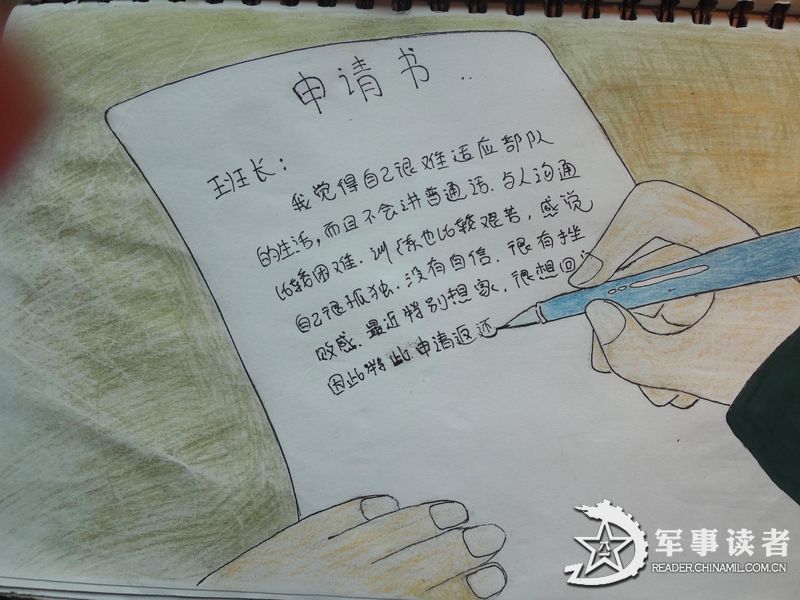 申请书..
王班长：
我觉得自己很难适应部队
的生活，而且不会讲普通话.与人沟通
比较困难.训练也比较艰苦，感觉
自己很孤独.没有自信.很有挫
败感.最近特别想家，很想回
因此特此申请返还
军事读者
READER.CHINAMIL.COM.CN